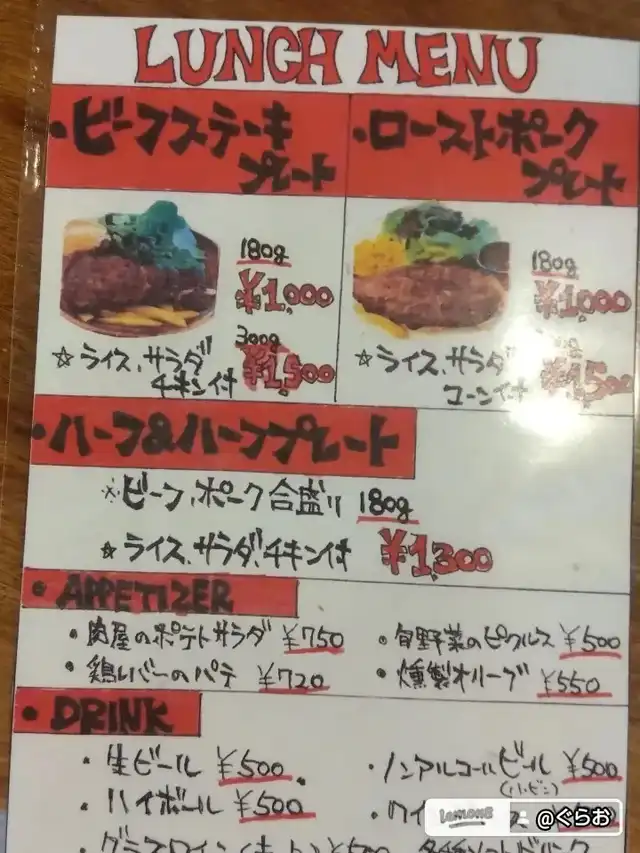 LUNCH MENU
・ビーフステーキ
プレート
180g
¥1,000
300g
¥1,500
☆ライス、サラダ
チキン付
・ローストポーク
プレート
180g
¥1,000
¥1,500
☆ライス、サラダ
コーン付
・ハーフ&ハーフプレート
※ビーフ、ポーク合盛り 180g
☆ライス、サラダ、チキン付 ¥1,300
・APPETIZER
・肉屋のポテトサラダ ¥750
・旬野菜のピクルス ¥500
・鶏レバーのパテ ¥720
・燻製オリーブ ¥550
・DRINK
・生ビール ¥500
・ノンアルコールビール ¥500
(小ビン)
・ハイボール ¥500
LemON8 @ぐらお